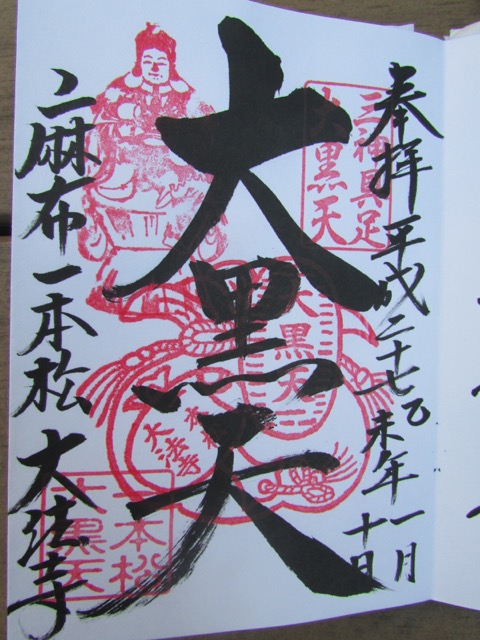 奉拝 平成二十七乙未年一月
十日
三神具足
大黒天
大黒天
大黒天
大法寺
一本松
大黒天
二麻布一本松 大法寺